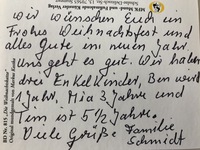 wir wünschen Euch ein
Frohes Weihnachtsfest und
alles Gute im neuen Jahr.
Uns geht es gut. Wir haben
drei Enkelkinder, Ben wird
1 Jahr, Mia 3 Jahre und
Tim ist 5 1/2 Jahre.
Viele Grüße Familie
Schmidt